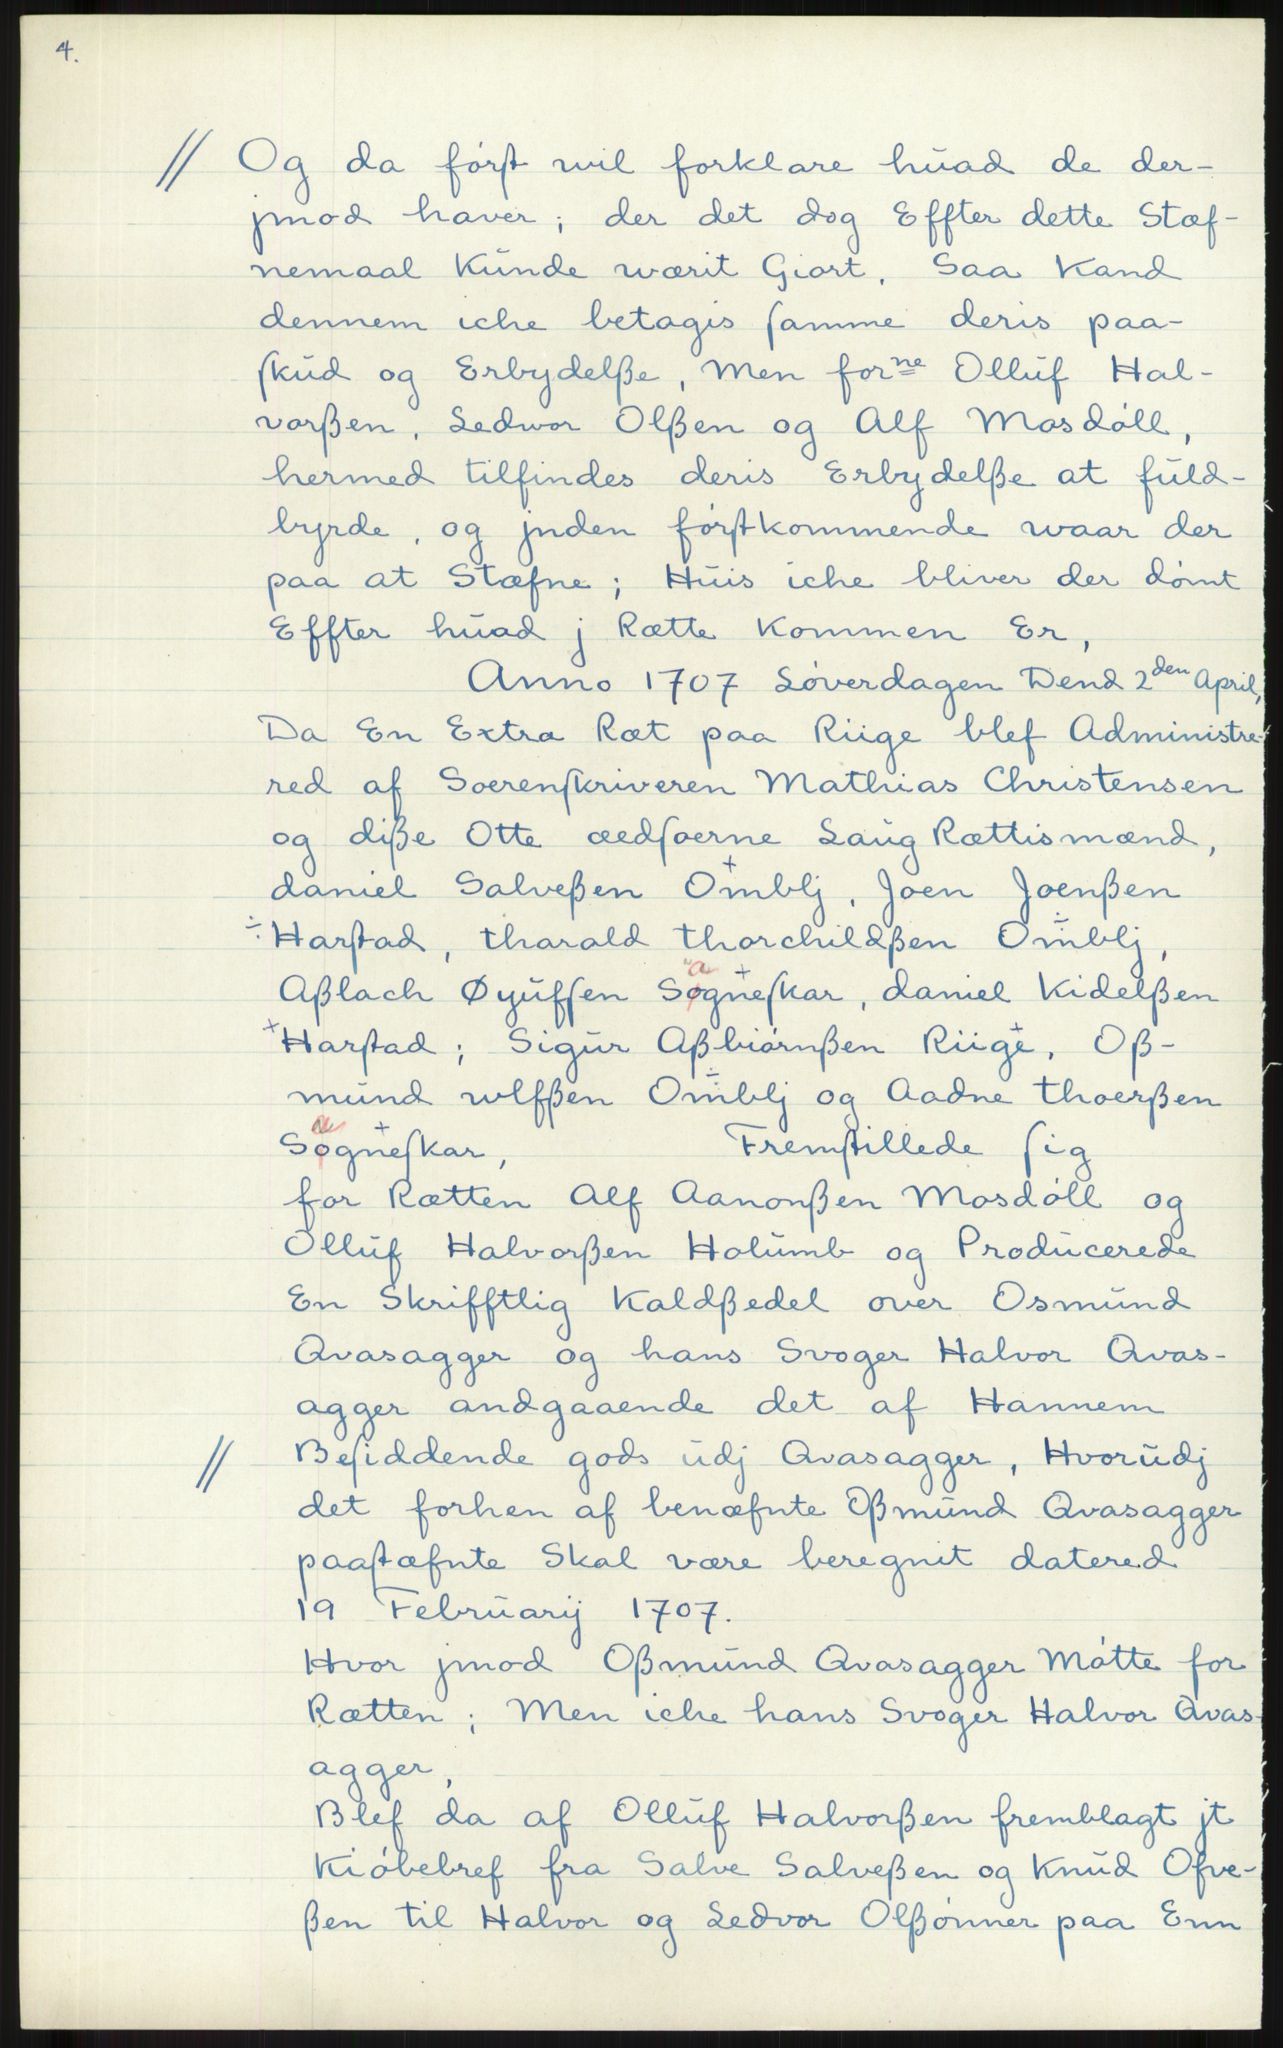 4.
// Og da først wil forklare huad de der-
jmod haver; der det dog Effter dette Stæf-
nemaal Kunde wærit Giort. Saa Kand
dennem iche betagis samme deris paa-
skud og Erbydelße, Men forne Olluf Hal-
vorßen, Ledwor Olßen og Alf Mosdøll,
hermed tilfindes deris Erbydelße at fuld-
byrde, og jnden førstkommende waar der
paa at Stæfne; Huis iche bliver der dømt
Effter huad j Rætte Kommen Er,
Anno 1707 Løverdagen Dend 2den April,
Da En Extra Ræt paa Riige blef Administre-
red af Soerenskriveren Mathias Christensen
og diße Otte ædsoerne Laug Rættismænd,
daniel Salveßen Omblj +, Joen Joenßen
÷ Harstad, tharald thorchildßen Omblj ÷,
Aßlach Øyufsen Sogneskar "a" +, daniel Kidelßen
+ Harstad; Sigur Aßbiørnßen Riige +, Oß-
mund ulfßen Omblj ÷ og Aadne thoerßen
Sogneskar a +, Fremstillede sig
for Rætten Alf Aanonßen Mosdøll og
Olluf Halvorßen Holumb og Producerede
En Skrifftlig Kaldßedel over Osmund
Qvasagger og hans Svoger Halvor Qvas-
agger andgaaende det af Hannem
// Besiddende gods udj Qvasagger, Hvorudj
det forhen af benæfnte Oßmund Qvasagger
paastæfnte Skal være beregnit datered
19 Februarij 1707.
Hvor jmod Oßmund Qvasagger Møtte for
Rætten; Men iche hans Svoger Halvor Qvas-
agger,
Blef da af Olluf Halvorßen fremblagt jt
Kiøbebref fra Salve Salveßen og Knud Ofve-
ßen til Halvor og Ledvor Olßønner paa Enn